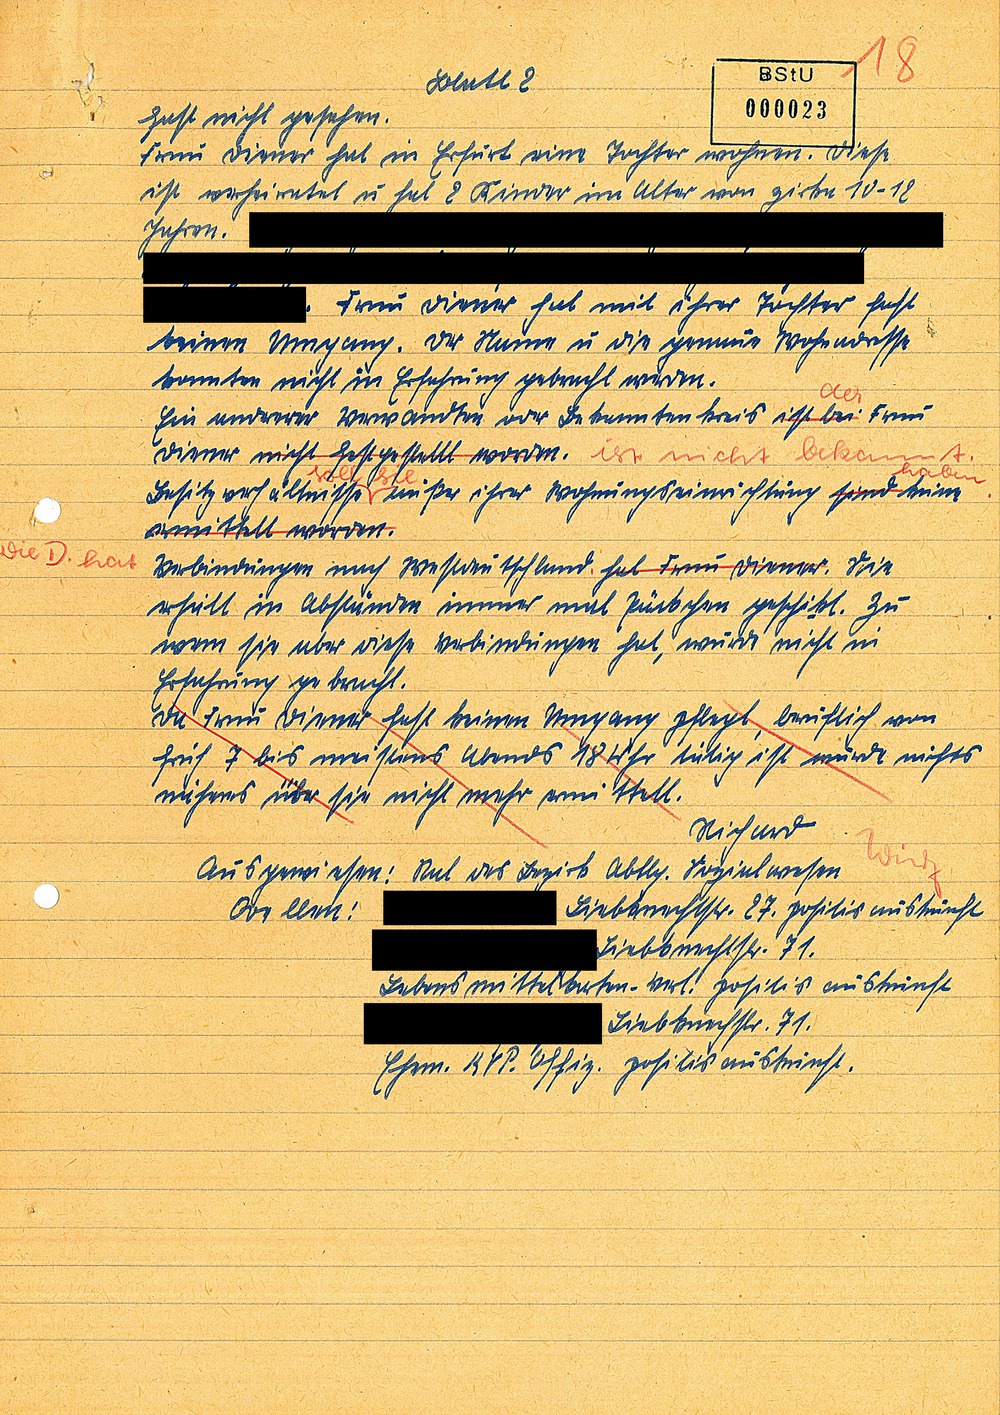 18
BStU
000023
Blatt 2
fast nicht gesehen.
Frau Diener hat in Erfurt eine Tochter wohnen. Diese
ist verheiratet u hat 2 Kinder im Alter von zirka 10-12
Jahren.
. Frau Diener hat mit ihrer Tochter fast
keinen Umgang. Der Name u die genaue Wohnadresse
konnten nicht in Erfahrung gebracht werden.
der
Ein anderer Verwandten oder Bekanntenkreis ist bei Frau
Diener nicht festgestellt worden. ist nicht bekannt.
soll sie haben
Besitzverhältnisse außer ihrer Wohnungseinrichtung sind keine
ermittelt worden.
Die D. hat
Verbindungen nach Westdeutschland hat Frau Diener. Sie
erhält in Abständen immer mal Päckchen geschikt. Zu
wem sie aber diese Verbindungen hat, wurde nicht in
Erfahrung gebracht.
Da Frau Diener fast keinen Umgang pflegt, beruflich von
früh 7 bis meistens Abends 18 Uhr tätig ist wurde nichts
näheres über sie nicht mehr ermittelt.
Richard
Ausgewiesen: Rat des Bezirk Abtlg. Sozialwesen
Quellen: Liebknechtstr. 27. positis auskunft
Liebknechtstr. 71.
Lebensmittelkarten-Vert. positis auskunft
Liebknechstr. 71.
Ehem. KVP. Offiz. positis auskunft.